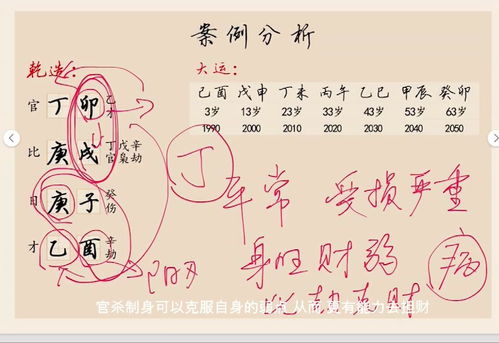 案例分析
乾造: 大运:
官 丁 卯 乙才
己酉 戊申 丁未 丙午 乙巳 甲辰 癸卯
3岁 13岁 23岁 33岁 43岁 53岁 63岁
1990 2000 2010 2020 2030 2040 2050
比 庚 戌 丁戊辛 官枭劫
日 庚 子 癸伤
才 乙 酉 辛劫
丁
平常 受损严重
身旺财弱
病
官杀制身可以克服自身的弱点 从而 更有能力去担财